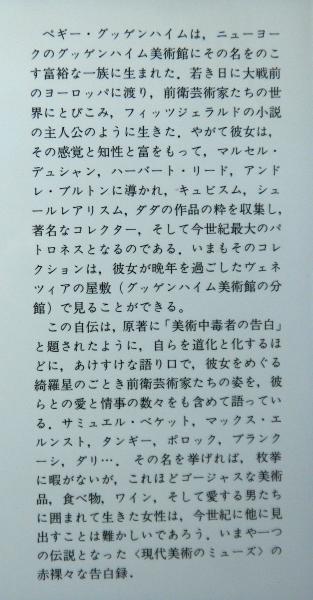 ペギー・グッゲンハイムは，ニューヨー
クのグッゲンハイム美術館にその名をのこ
す富裕な一族に生まれた．若き日に大戦前
のヨーロッパに渡り，前衛芸術家たちの世
界にとびこみ，フィッツジェラルドの小説
の主人公のように生きた．やがて彼女は，
その感覚と知性と富をもって，マルセル・
デュシャン，ハーバート・リード，アンド
レ・ブルトンに導かれ，キュビスム，シュ
ールレアリスム，ダダの作品の粋を収集し，
著名なコレクター，そして今世紀最大のパ
トロネスとなるのである．いまもそのコレ
クションは，彼女が晩年を過ごしたヴェネ
ツィアの屋敷（グッゲンハイム美術館の分
館）で見ることができる。
この自伝は，原著に「美術中毒者の告白」
と題されたように，自らを道化と化するほ
どに，あけすけな語り口で，彼女をめぐる
綺羅星のごとき前衛芸術家たちの姿を，彼
らとの愛と情事の数々をも含めて語ってい
る．サミュエル・ベケット，マックス・エ
ルンスト，タンギー，ポロック，ブランク
ーシ，ダリ…．その名を挙げれば，枚挙
に暇がないが，これほどゴージャスな美術
品，食べ物，ワイン，そして愛する男たち
に囲まれて生きた女性は，今世紀に他に見
出すことは難かしいであろう．いまや一つ
の伝説となった〈現代美術のミューズ〉の
赤裸々な告白録．